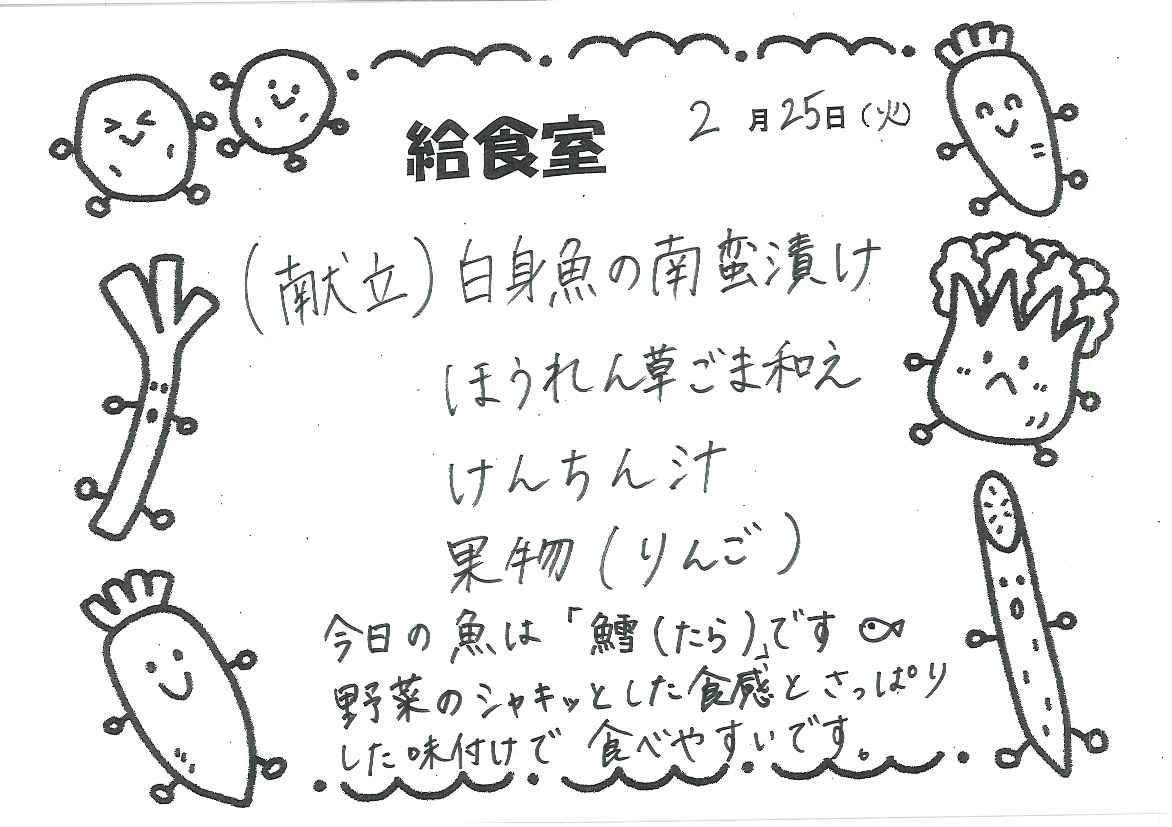 給食室
2月25日(火)
(献立)白身魚の南蛮漬け
ほうれん草ごま和え
けんちん汁
果物(りんご)
今日の魚は「鱈(たら)」です
野菜のシャキッとした食感とさっぱり
した味付けで食べやすいです。